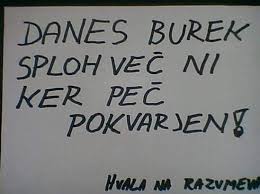 DANES BUREK
SPLOH VEČ NI
KER PEČ
POKVARJEN!
HVALA NA RAZUMEV